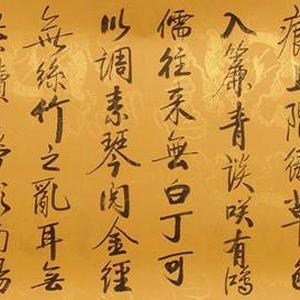 痕上階綠草色
入簾青談咲有鴻
儒往来無白丁可
以調素琴閱金經
無絲竹之亂耳無
牘形南陽